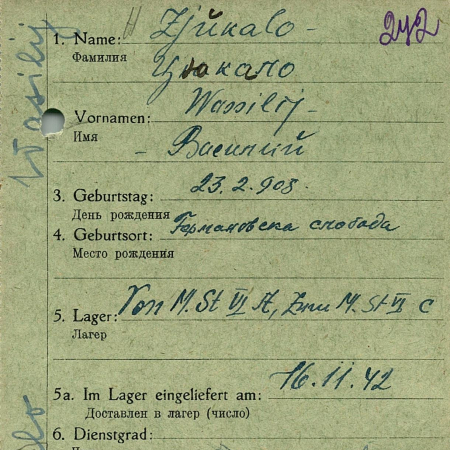 242
1. Name: Zjukalo -
Фамилия
Цюкало
Vornamen: Wassilij -
Имя
- Василий
3. Geburtstag: 23.2.908.
День рождения
4. Geburtsort: Германовска слобода
Место рождения
5. Lager: Von M. St VI A, Zum M. St VI C
Лагер
5a. Im Lager eingeliefert am: 16.11.42
Доставлен в лагер (число)
6. Dienstgrad:
Wasilij